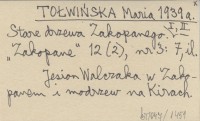 TOŁWIŃSKA Maria 1939 a.
I, II
Stare drzewa Zakopanego.
"Zakopane" 12 (2), nr 3: 7, il.
Jesion Walczaka w Zako-
panem i modrzew na Kirach.